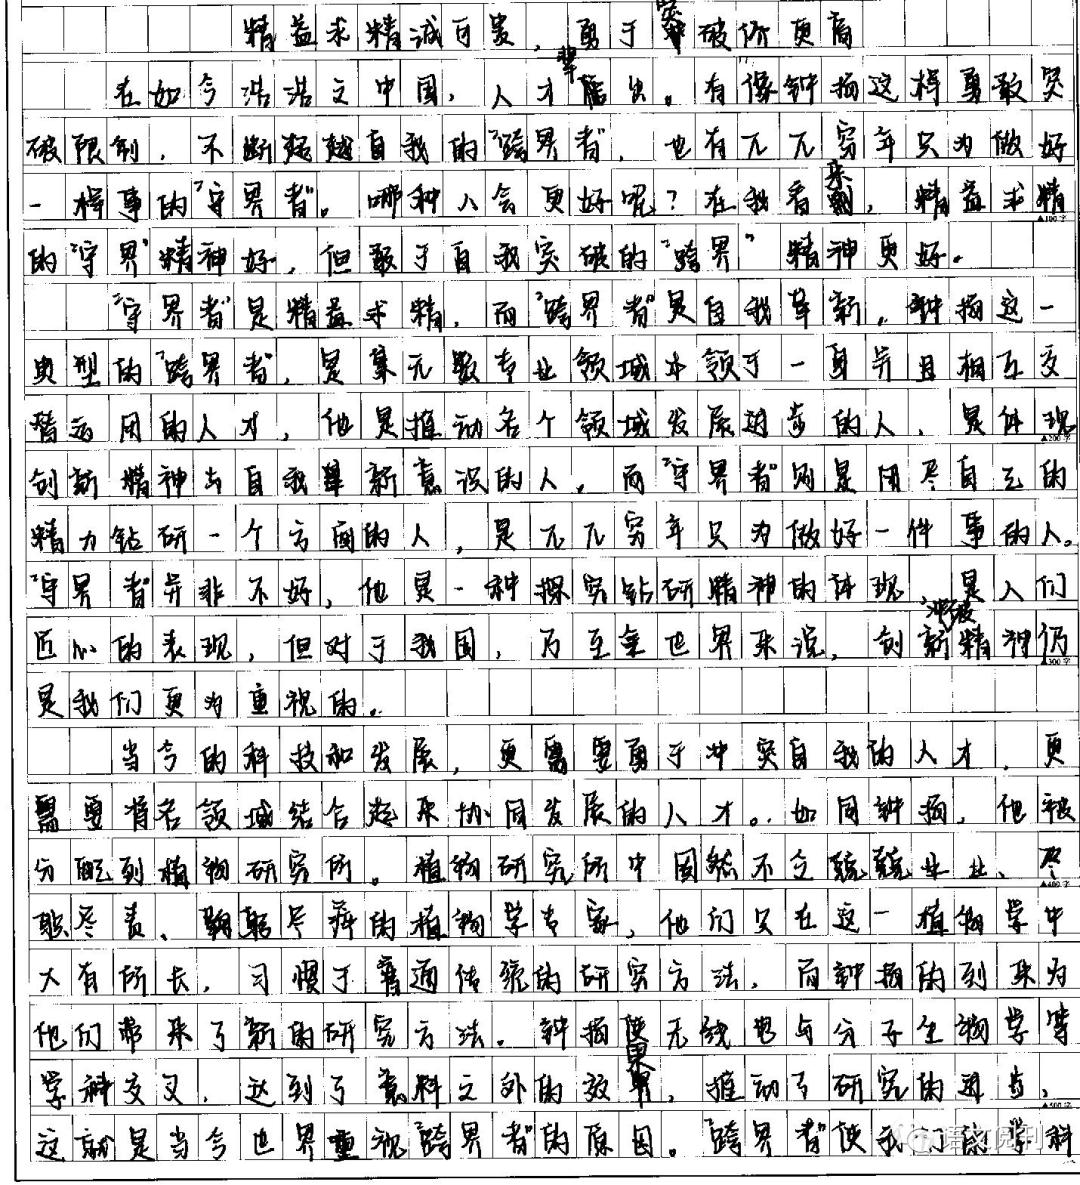 精益求精诚可贵，勇于突破价更高
在如今浩浩之中国，人才辈出。有像钟扬这样勇敢突
破限制，不断超越自我的“跨界者”，也有兀兀穷年只为做好
一样事的“守界者”。哪种人会更好呢？在我看来，精益求精
▲100字
的“守界”精神好，但敢于自我突破的“跨界”精神更好。
“守界者”是精益求精，而“跨界者”是自我革新。钟扬这一
典型的“跨界者”，是集无数专业领域本领于一身并且相互交
替运用的人才，他是推动各个领域发展进步的人，是体现
▲200字
创新精神与自我革新意识的人。而“守界者”则是用尽自己的
精力钻研一个方面的人，是兀兀穷年只为做好一件事的人。
“守界者”并非不好，他是一种探究钻研精神的体现，是人们
匠心的表现，但对于我国，乃至全世界来说，创新冲破精神仍
▲300字
是我们更为重视的。
当今的科技和发展，更需要勇于冲突自我的人才，更
需要将各领域结合起来协同发展的人才。如同钟扬，他被
分配到植物研究所。植物研究所中固然不乏兢兢业业、尽
▲400字
职尽责、鞠躬尽瘁的植物学专家，他们只在这一植物学中
大有所长，习惯于普通传统的研究方法，而钟扬的到来为
他们带来了新的研究方法。钟扬使无线电与分子生物学等
学科交叉，达到了意料之外的效果，推动了研究的进步，
▲500字
这就是当今世界重视“跨界者”的原因。“跨界者”使我们的学科
语文阅刊